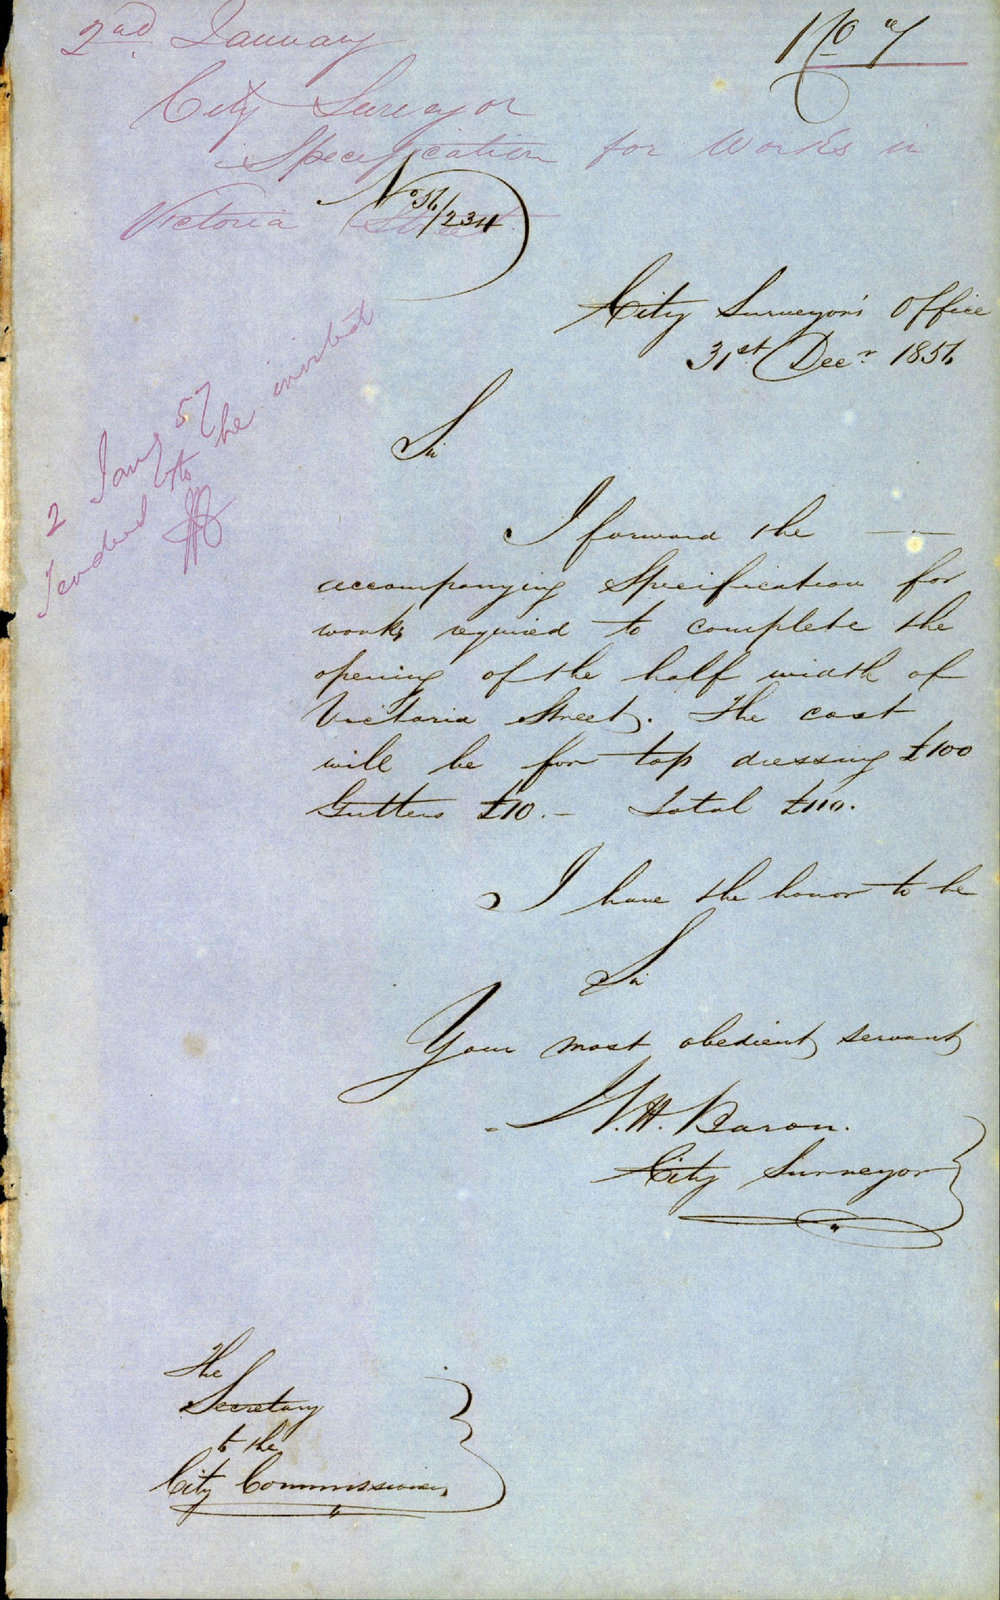 2nd January
No 7
City Surveyor
Specification for Works in
Victoria Street
No 56/234
City Surveyor's Office
31st Decr 1856
2 Jany 57
Tenders to be invited
Sir
I forward the
accompanying Specification for
works required to complete the
opening of the half width of
Victoria Street. The cost
will be for top dressing £100
Gutters £10.— Total £110.
I have the honor to be
Sir
Your most obedient servant
W. H. Baron.
City Surveyor
The
Secretary
to the
City Commissioners